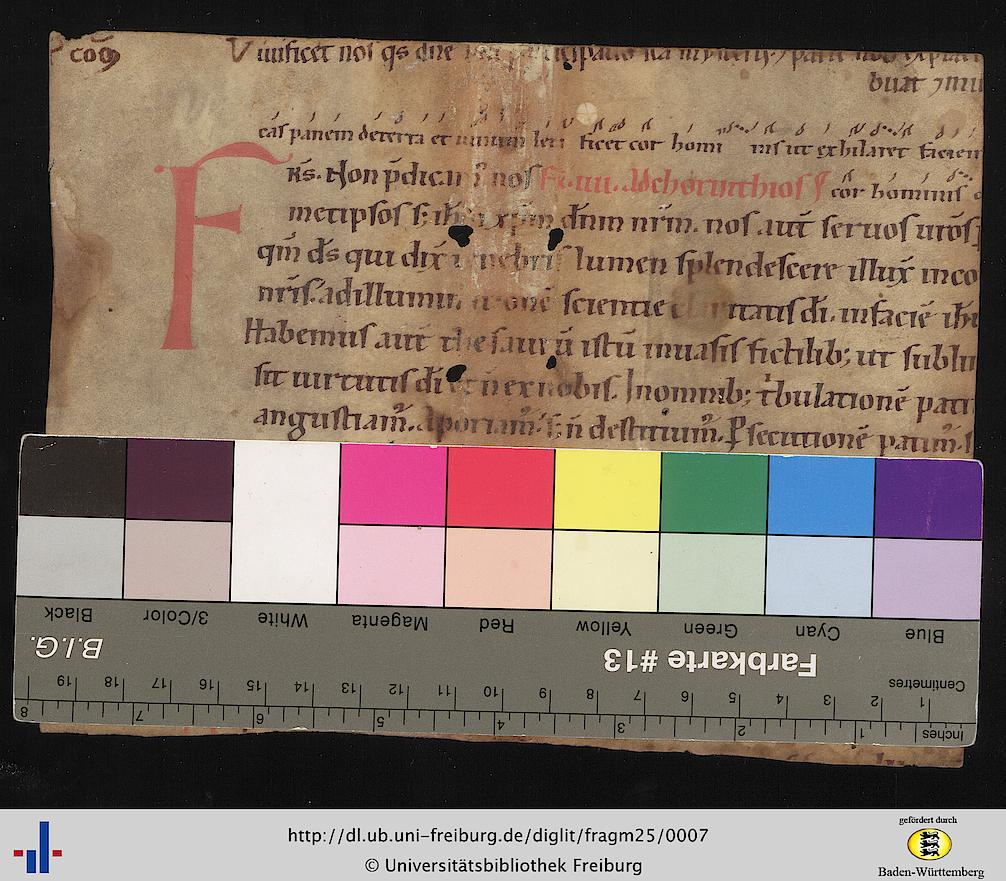 cōꝯ Viuificet nos qs dn̄e
buat ⁊mu
cās panem de terra et uinum leti ficet cor homi nis ut exhilaret faciem
RS. Non p̄dicam nos Fr. iiii. Ad chorinthios cor hominis
F
metipsos s; ih̄m xp̄m dn̄m nr̄m. nos aut̄ seruos ur̄os
qm̄ ds̄ qui dix̄ tenebris lumen splendescere illux̄ in co
nr̄is. ad illumin ationē scientie claritatis dī. in faciē ih̄u
Habemus aut̄ thesaurū istū in uasis fictilib; ut subli
sit uirtutis dī et n̄ ex nobis. In omnib; t̄bulationē pati
angustiam᷑. Aporiam᷑. s; n̄ destituim᷑. Ꝑsecutionē patim᷑. s
Black 3/Color White Magenta Red Yellow Green Cyan Blue
B.I.G. Farbkarte #13
Centimetres
19 18 17 16 15 14 13 12 11 10 9 8 7 6 5 4 3 2 1
8 7 6 5 4 3 2 1 Inches
http://dl.ub.uni-freiburg.de/diglit/fragm25/0007
© Universitätsbibliothek Freiburg
gefördert durch
Baden-Württemberg